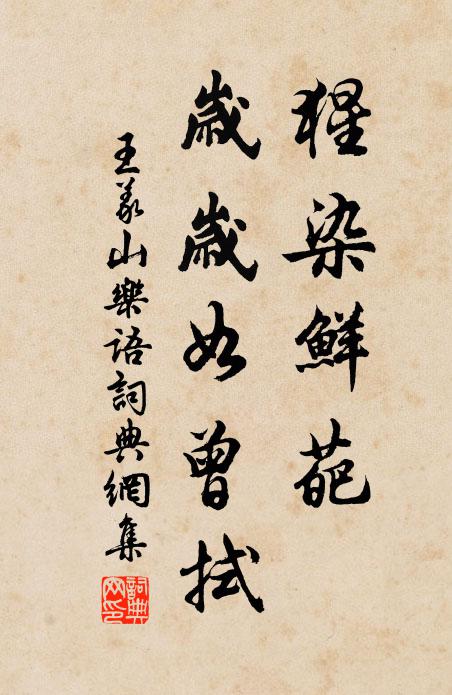 猩染鮮葩
歲歲如曾拭
王義山樂語詞典網集
詞典網印